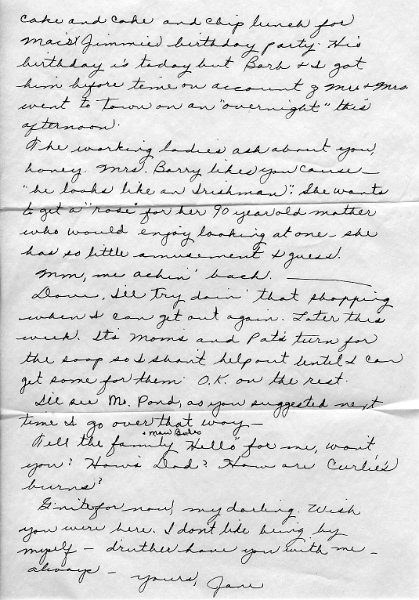 cake and coke and chip lunch for
Mais' Jimmie's birthday party. His
birthday is today but Barb & I got
him before time on account of Mr & Mrs
went to town on an "overnight" this
afternoon.
The working ladies ask about you,
honey. Mrs. Barry likes you cause—
"he looks like an Irishman". She wants
to get a "rose" for her 90 year old mother
who would enjoy looking at one - she
has so little amusement I guess.
Mm, me achin' back.
Dave, I'll try doin' that shopping
when I can get out again. Later this
week. It's Mom's and Pat's turn for
the soap so I shan't help out until I can
get some for them. O.K. on the rest.
I'll see Mr. Pond, as you suggested next
time I go over that way—
Tell the family "Hello" for me, won't
you? How's Dad? How are Curlie's
burns?
G'nite for now, my darling. Wish
you were here. I don't like being by
myself - druther have you with me -
always - yours, Jane